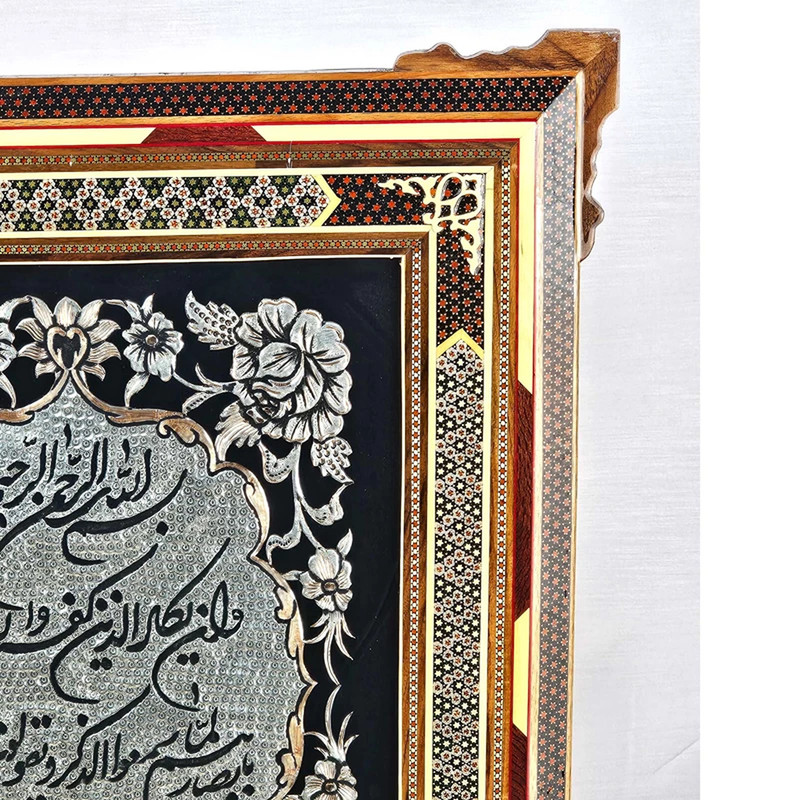 بسم الله الرحمن الرحیم
وان یکاد الذین کفروا
بابصارهم لما سمعوا الذکر و یقولون